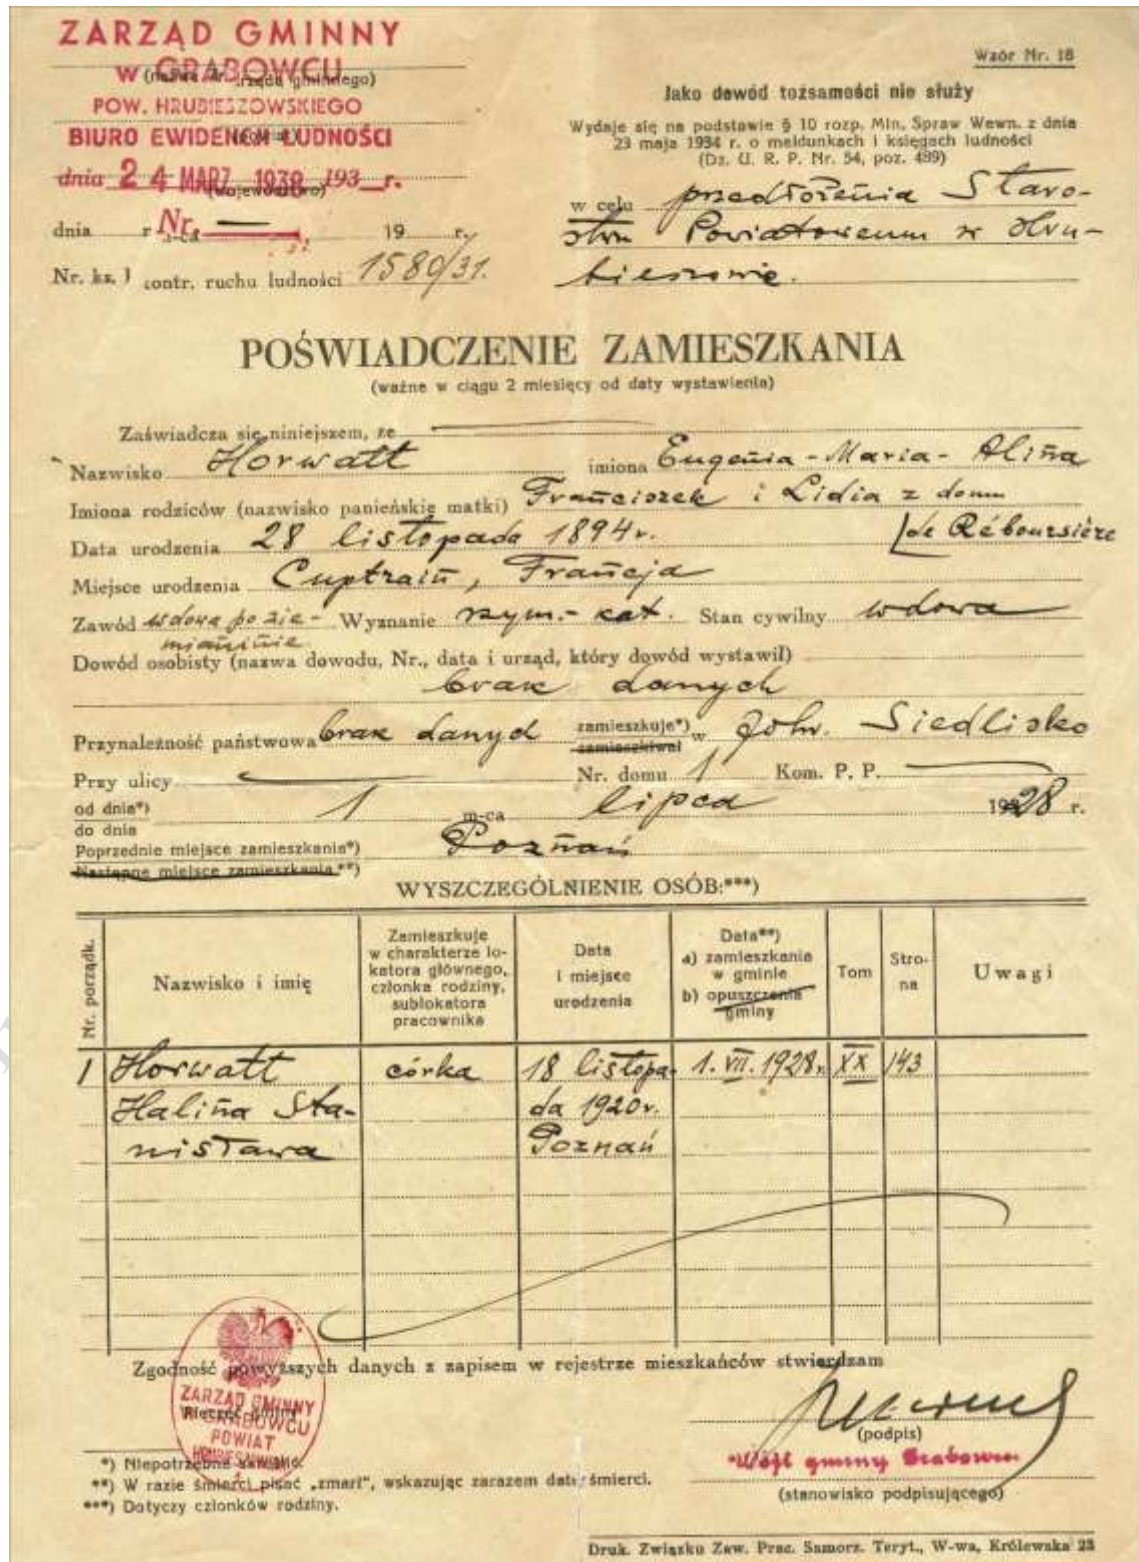 ZARZĄD GMINNY
w GRABOWCU
POW. HRUBIESZOWSKIEGO
BIURO EWIDENCJI LUDNOŚCI
dnia 24 MARZ. 1938 193_r.
(województwo)
dnia r Nr. — 19 r.
Nr. ks. kontr. ruchu ludności 1580/31.
Wzór Nr. 18
Jako dowód tożsamości nie służy
Wydaje się na podstawie § 10 rozp. Min. Spraw Wewn. z dnia
23 maja 1934 r. o meldunkach i księgach ludności
(Dz. U. R. P. Nr. 54, poz. 489)
w celu przedłożenia Staro-
stwu Powiatowemu w Hru-
bieszowie.
POŚWIADCZENIE ZAMIESZKANIA
(ważne w ciągu 2 miesięcy od daty wystawienia)
Zaświadcza się niniejszem, że
Nazwisko Horwatt imiona Eugenia-Maria-Alina
Imiona rodziców (nazwisko panieńskie matki) Franciszek i Lidia z domu
Data urodzenia 28 listopada 1894 r. de Réboursière
Miejsce urodzenia Cuptrain, Francja
Zawód wdowa po zie- Wyznanie rzym.-kat. Stan cywilny wdowa
mianinie
Dowód osobisty (nazwa dowodu, Nr., data i urząd, który dowód wystawił)
brak danych
Przynależność państwowa brak danych zamieszkuje*) zamieszkiwał w folw. Siedlisko
Przy ulicy — Nr. domu 1 Kom. P. P. —
od dnia*) 1 m-ca lipca 1928 r.
do dnia
Poprzednie miejsce zamieszkania*) Poznań
Następne miejsce zamieszkania**)
WYSZCZEGÓLNIENIE OSÓB:***)
Nr. porządk.
Nazwisko i imię
Zamieszkuje
w charakterze lo-
katora głównego,
członka rodziny,
sublokatora
pracownika
Data
i miejsce
urodzenia
Data**)
a) zamieszkania
w gminie
b) opuszczenia
gminy
Tom
Stro-
na
Uwagi
1 Horwatt córka 18 listopa- 1. VII. 1928r. XX 143
Halina Sta- da 1920r.
nisława Poznań
Zgodność powyższych danych z zapisem w rejestrze mieszkańców stwierdzam
ZARZĄD GMINNY
W GRABOWCU
POWIAT
Pieczęć gminy
(podpis)
Wójt gminy Grabowiec
(stanowisko podpisującego)
*) Niepotrzebne skreślić.
**) W razie śmierci pisać „zmarł”, wskazując zarazem datę śmierci.
***) Dotyczy członków rodziny.
Druk. Związku Zaw. Prac. Samorz. Teryt., W-wa, Królewska 23